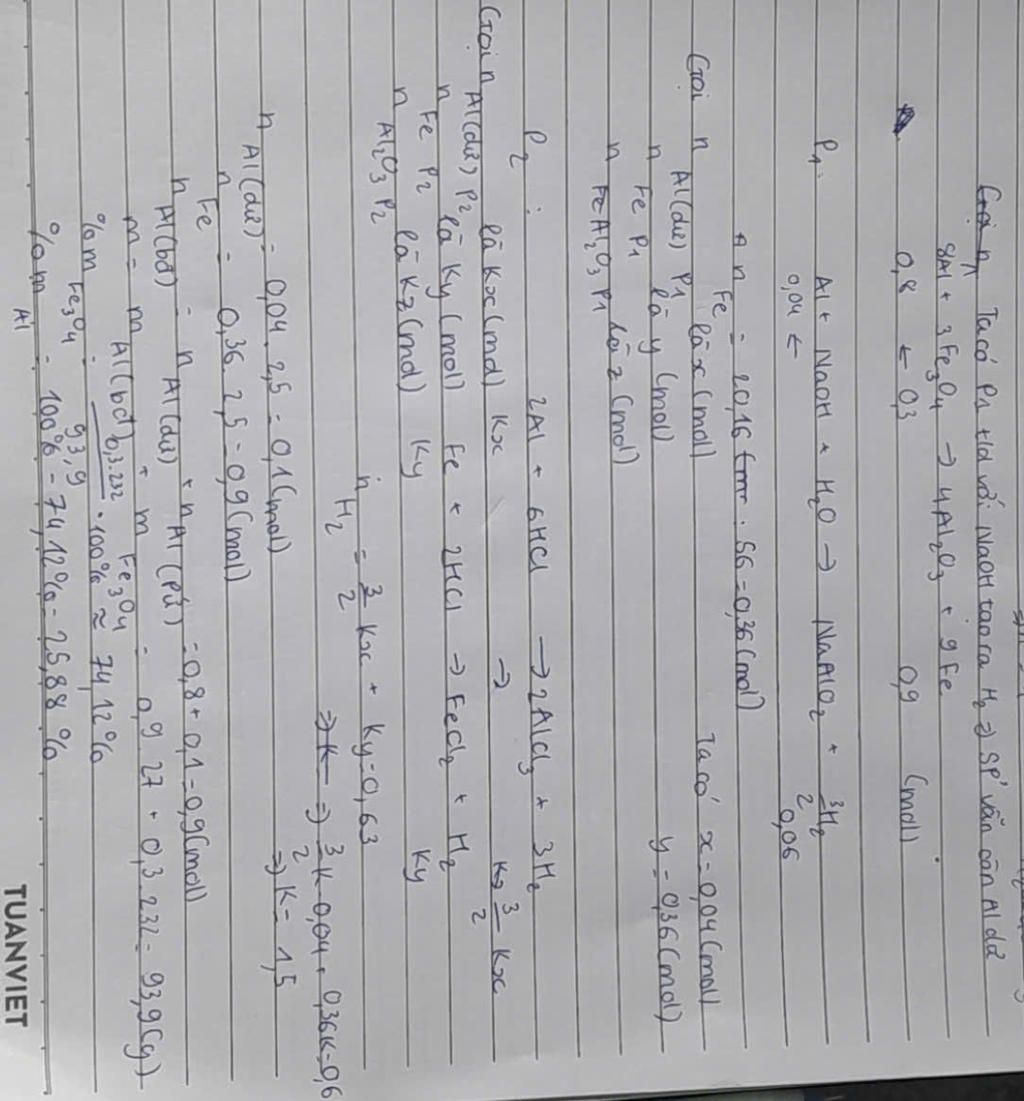 Ta có P1 t/d với NaOH tạo ra H2 => SP' vẫn còn Al dư
8Al + 3Fe3O4 → 4Al2O3 + 9Fe
0,8 ← 0,3 0,9 (mol)
P1: Al + NaOH + H2O → NaAlO2 + 3/2 H2
0,04 ← 0,06
n Fe = 20,16 : 56 = 0,36 (mol)
Gọi n Al(dư) P1 là x (mol) Ta có x = 0,04 (mol)
n Fe P1 là y (mol) y = 0,36 (mol)
n Al2O3 P1 là z (mol)
P2: 2Al + 6HCl → 2AlCl3 + 3H2
Gọi n Al(dư) P2 là Kx (mol) Kx → 3/2 Kx
n Fe P2 là Ky (mol) Fe + 2HCl → FeCl2 + H2
n Al2O3 P2 là Kz (mol) Ky Ky
n H2 = 3/2 Kx + Ky = 0,63
=> 3/2 K 0,04 + 0,36K = 0,6
=> K = 1,5
n Al(dư) = 0,04 . 2,5 = 0,1 (mol)
n Fe = 0,36 . 2,5 = 0,9 (mol)
n Al(bđ) = n Al(dư) + n Al(pứ) = 0,8 + 0,1 = 0,9 (mol)
m = m Al(bđ) + m Fe3O4 = 0,9 . 27 + 0,3 . 232 = 93,9 (g)
%m Fe3O4 = 0,3.232 / 93,9 . 100% ≈ 74,12%
%m Al = 100% - 74,12% = 25,88%
TUANVIET